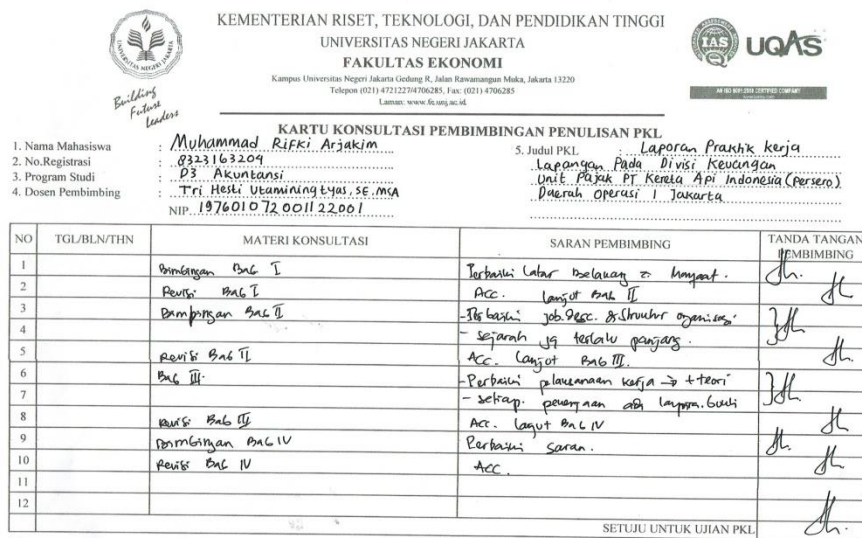 KEMENTERIAN RISET, TEKNOLOGI, DAN PENDIDIKAN TINGGI
UNIVERSITAS NEGERI JAKARTA
FAKULTAS EKONOMI
Kampus Universitas Negeri Jakarta Gedung R, Jalan Rawamangun Muka, Jakarta 13220
Telepon (021) 4721227/4706285, Fax: (021) 4706285
Laman: www.fe.unj.ac.id
Building Future Leaders
IAS UQAS
KARTU KONSULTASI PEMBIMBINGAN PENULISAN PKL
1. Nama Mahasiswa : Muhammad Rifki Arjakim
2. No.Registrasi : 8323163209
3. Program Studi : D3 Akuntansi
4. Dosen Pembimbing : Tri Hesti Utaminingtyas, SE. MSA
NIP. 19760107 2001122001
5. Judul PKL : Laporan Praktik kerja
Lapangan Pada Divisi Keuangan
Unit Pajak PT Kereta Api Indonesia (Persero)
Daerah Operasi 1 Jakarta
NO TGL/BLN/THN MATERI KONSULTASI SARAN PEMBIMBING TANDA TANGAN PEMBIMBING
1 Bimbingan Bab I Perbaiki Latar Belakang
2 Revisi Bab I Acc. Lanjut Bab II
3 Bimbingan Bab II - Perbaiki job. Desc. & Struktur organisasi
4 - sejarah jg terlalu panjang.
5 Revisi Bab II Acc. Lanjut Bab III.
6 Bab III. - Perbaiki pelaksanaan kerja → + teori
7 - setiap
8 Revisi Bab III Acc. Bab IV
9 Bimbingan Bab IV Perbaiki saran.
10 Revisi Bab IV Acc.
11
12
SETUJU UNTUK UJIAN PKL